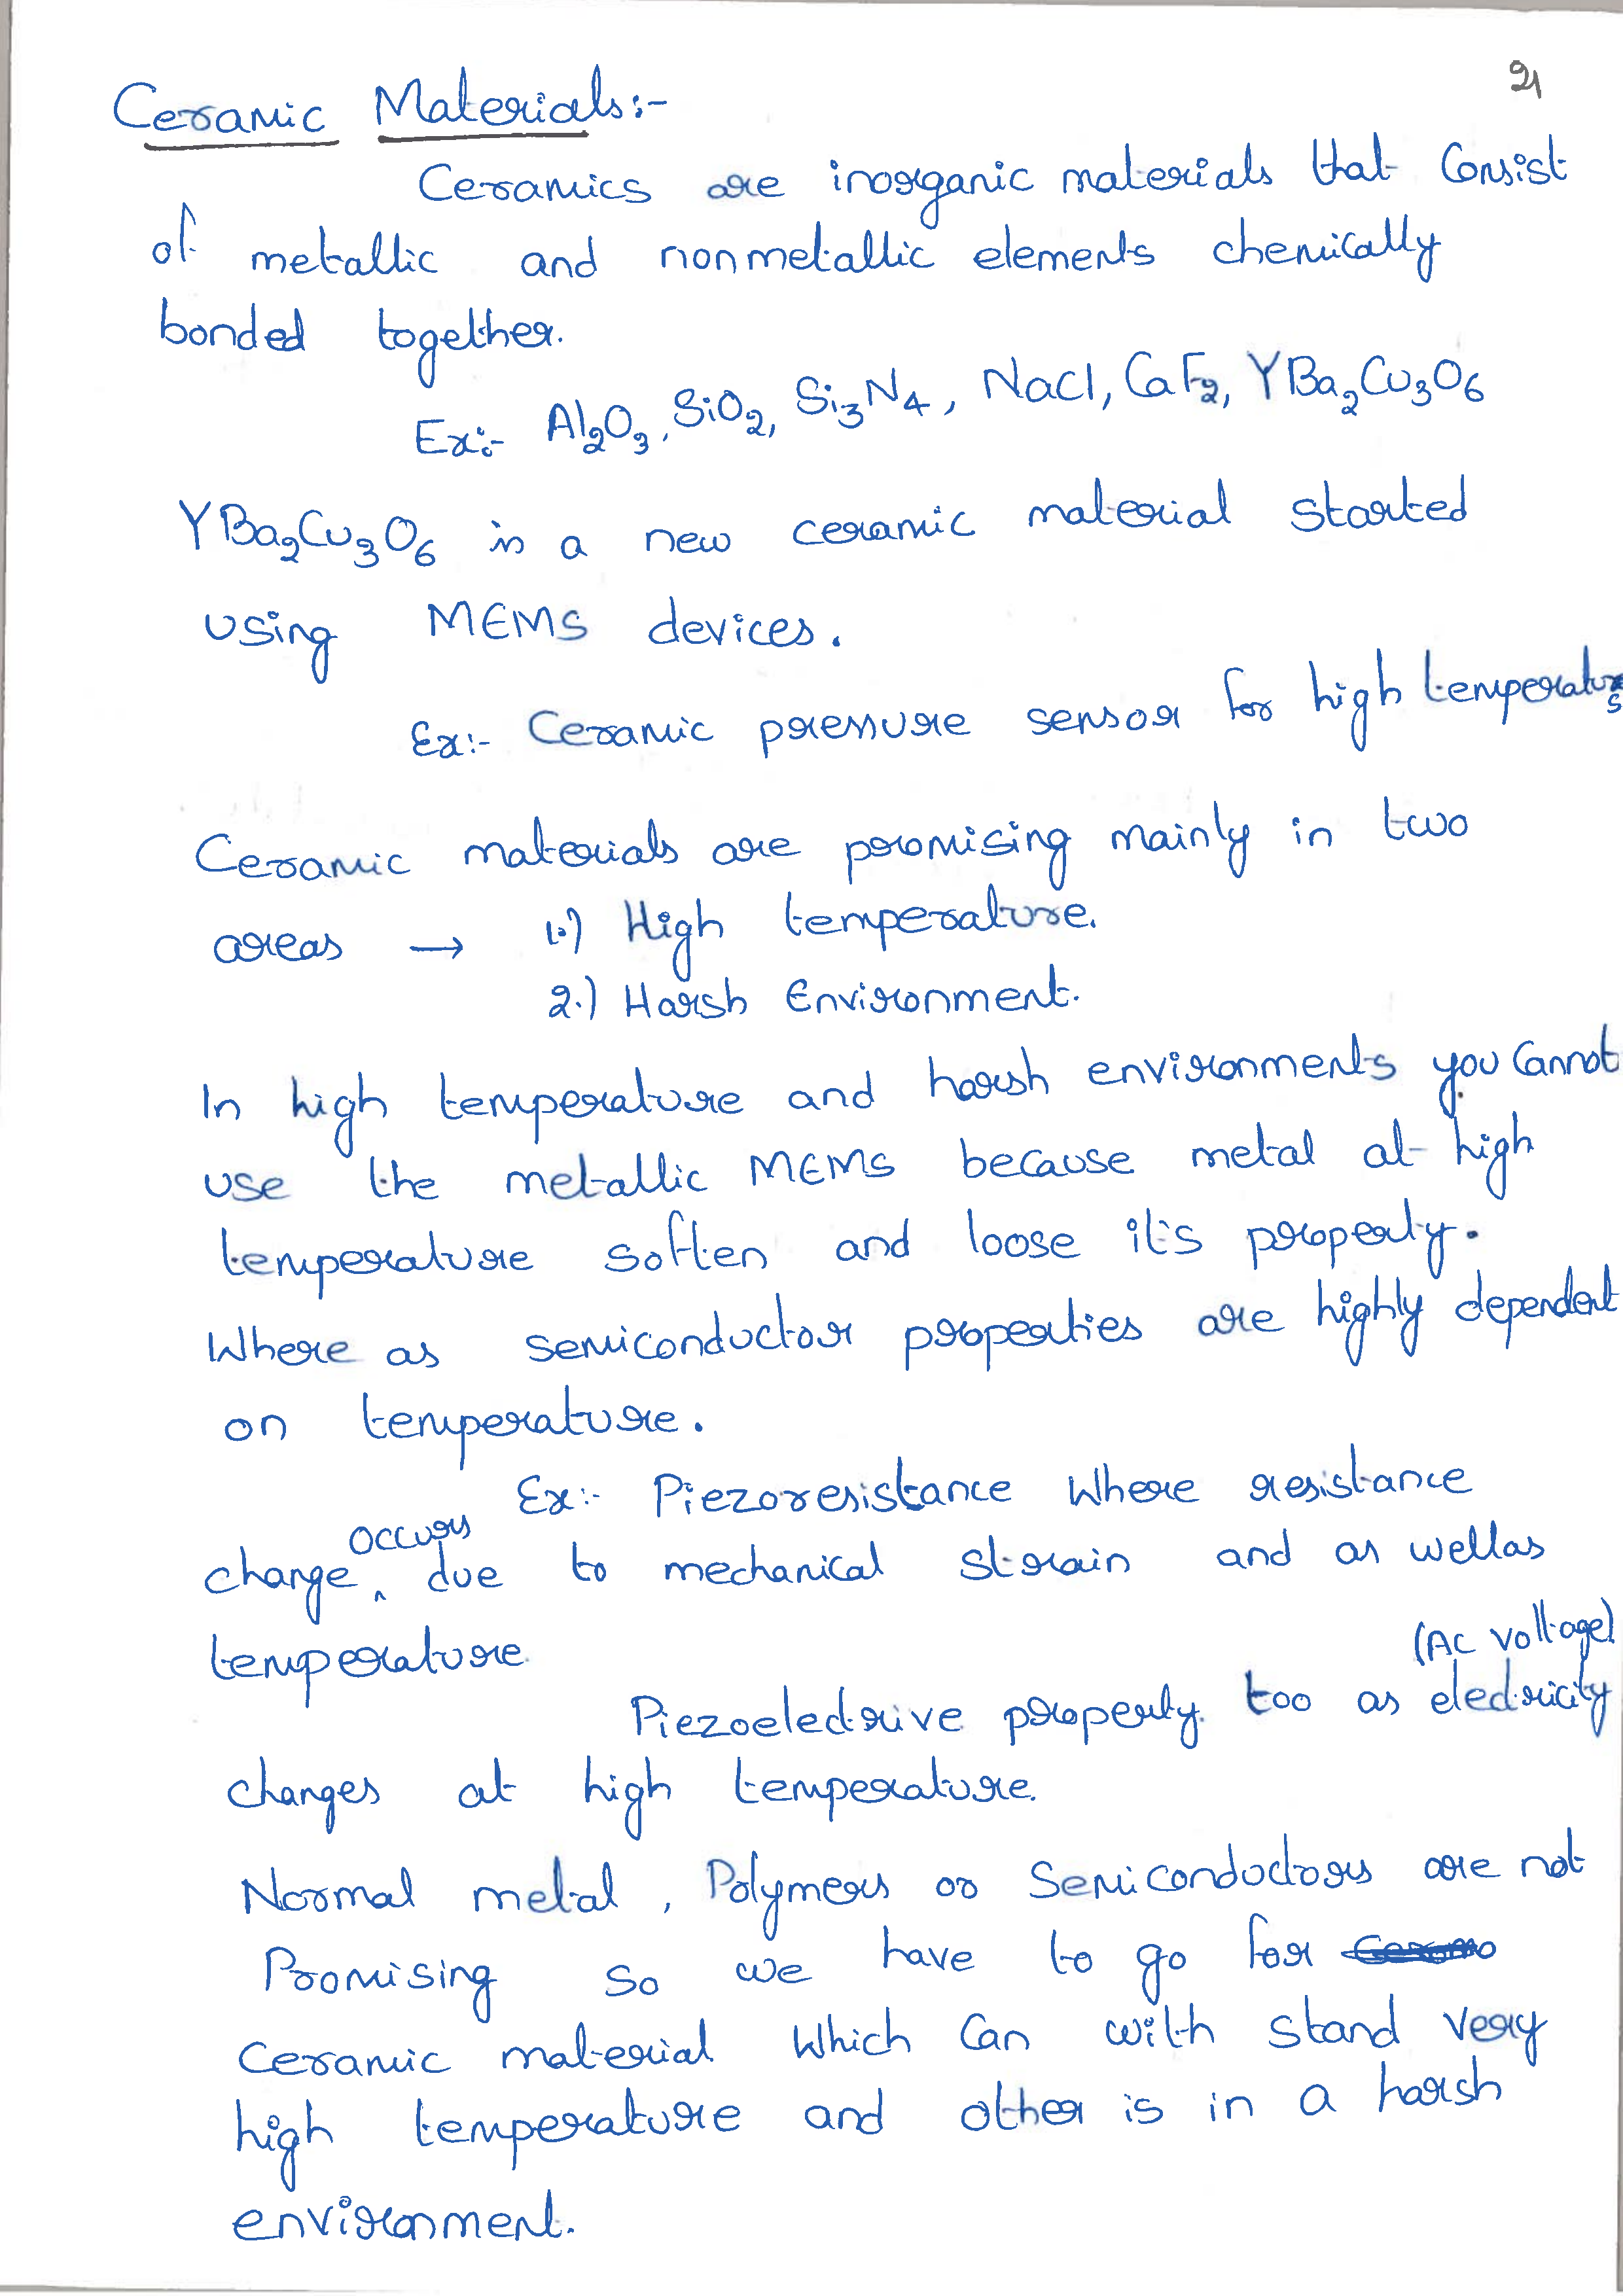 21
Ceramic Materials:-
Ceramics are inorganic materials that consist
of metallic and nonmetallic elements chemically
bonded together.
Ex:- Al₂O₃, SiO₂, Si₃N₄, NaCl, CaF₂, YBa₂Cu₃O₆
YBa₂Cu₃O₆ is a new ceramic material started
using MEMS devices.
Ex:- Ceramic pressure sensor for high temperatures
Ceramic materials are promising mainly in two
areas → 1.) High temperature.
2.) Harsh Environment.
In high temperature and harsh environments you cannot
use the metallic MEMS because metal at high
temperature soften and loose it's property.
Where as semiconductor properties are highly dependent
on temperature.
Ex:- Piezoresistance where resistance
change ^ occurs due to mechanical strain and as wellas
temperature.
(Ac voltage)
Piezoelectrive property too as electricity
changes at high temperature.
Normal metal, Polymers or Semiconductors are not
Promising so we have to go for
Ceramic material which can with stand very
high temperature and other is in a harsh
environment.